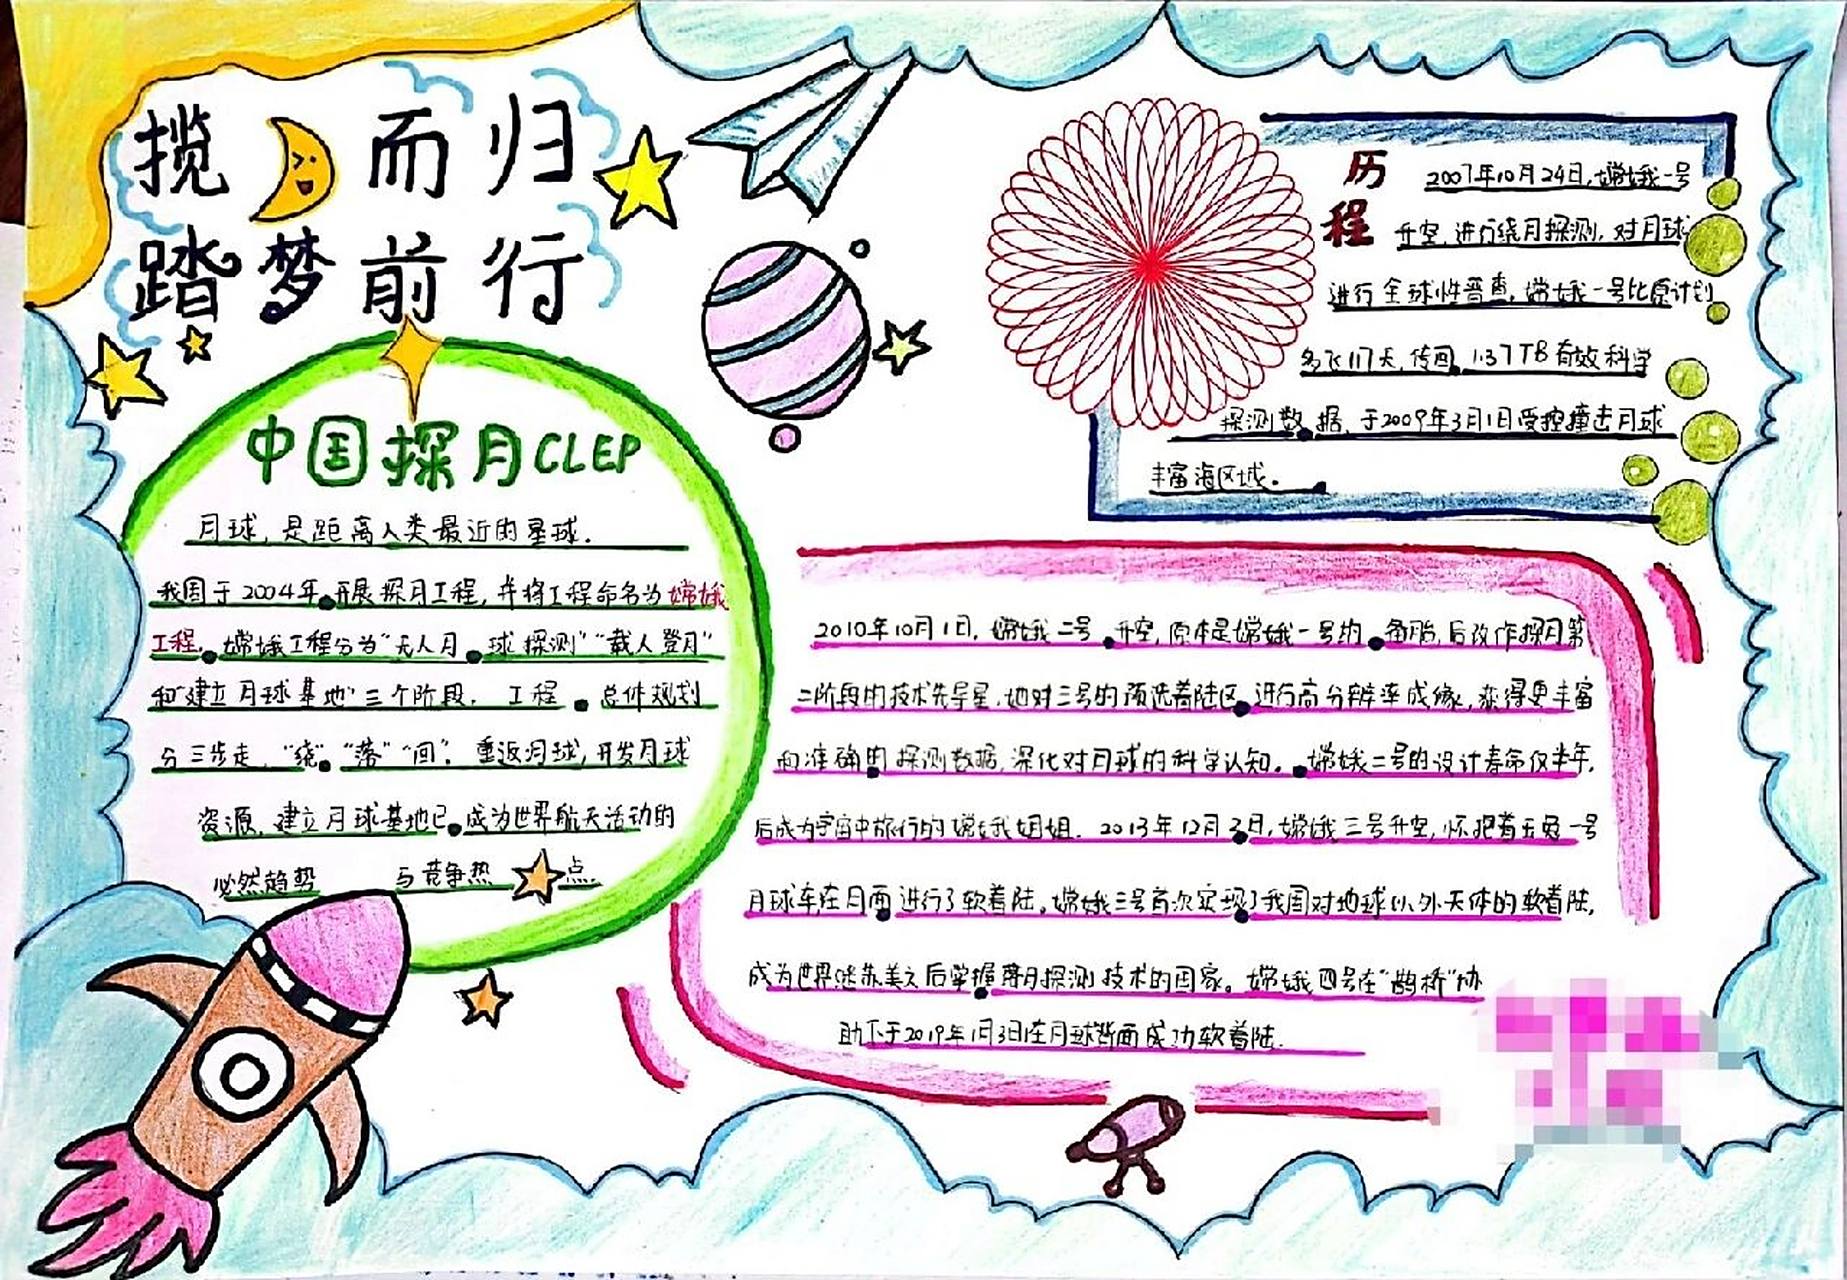 揽 而归
踏梦前行
中国探月CLEP
月球,是距离人类最近的星球.
我国于2004年开展探月工程,并将工程命名为嫦娥
工程.嫦娥工程分为“无人月球探测”“载人登月”
和“建立月球基地”三个阶段. 工程总体规划
分三步走,“绕”“落”“回”. 重返月球,开发月球
资源,建立月球基地已成为世界航天活动的
必然趋势 与竞争热点.
历程
2007年10月24日,嫦娥一号
升空,进行绕月探测,对月球
进行全球性普查,嫦娥一号比原计划
多飞117天,传回1.37TB有效科学
探测数据,于2009年3月1日受控撞击月球
丰富海区域。
2010年10月1日,嫦娥二号升空,原本是嫦娥一号的备胎,后改作探月第
二阶段的技术先导星,她对三号的预选着陆区进行高分辨率成像,获得更丰富
和准确的探测数据,深化对月球的科学认知。嫦娥二号的设计寿命仅半年,
后成为宇宙中旅行的嫦娥姐姐. 2013年12月2日,嫦娥三号升空,怀抱着玉兔一号
月球车在月面进行了软着陆。嫦娥三号首次实现了我国对地球以外天体的软着陆,
成为世界继苏美之后掌握落月探测技术的国家。嫦娥四号在“鹊桥”协
助下于2019年1月3日在月球背面成功软着陆.